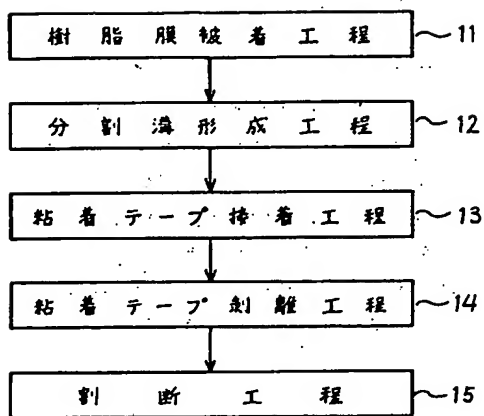 樹脂膜被着工程 11
分割溝形成工程 12
粘着テープ接着工程 13
粘着テープ剥離工程 14
割断工程 15